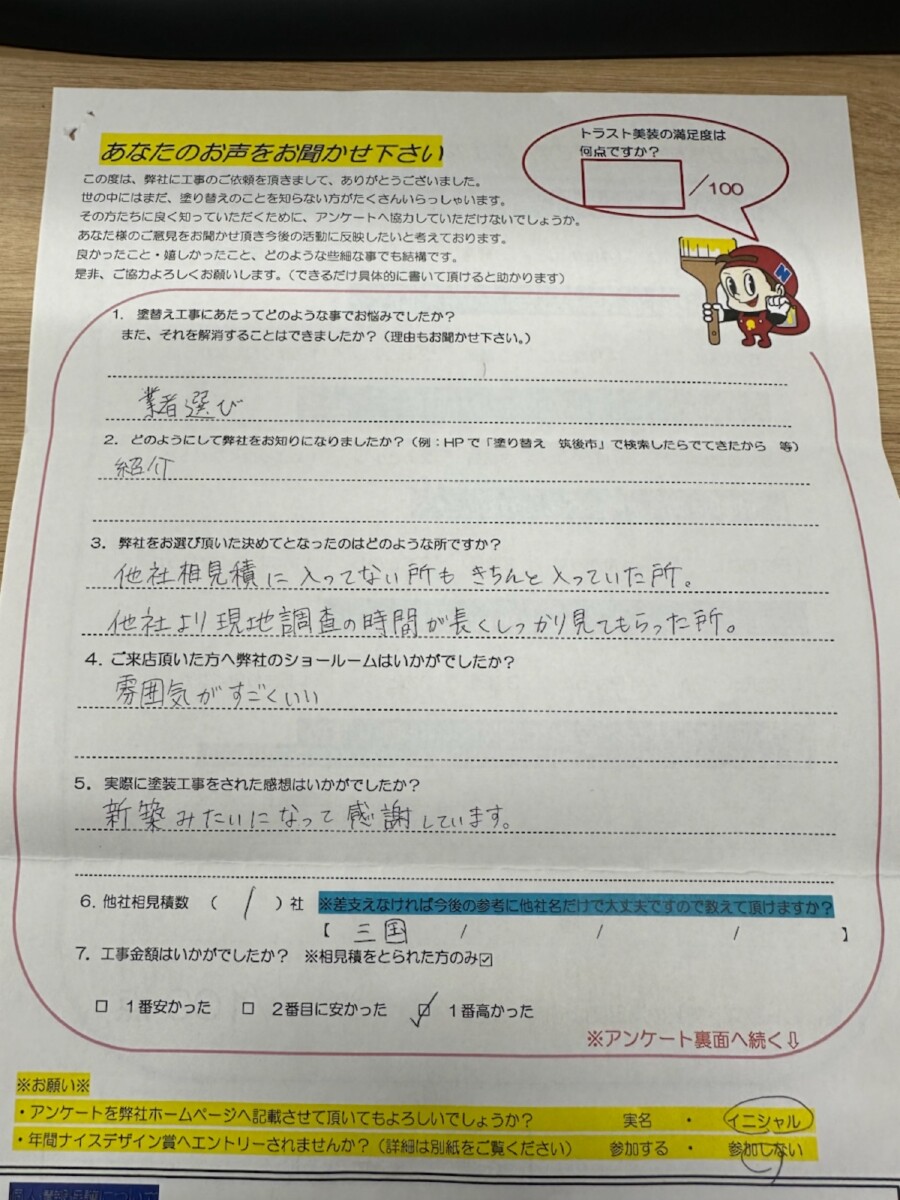 あなたのお声をお聞かせ下さい
トラスト美装の満足度は
何点ですか？
／100
この度は、弊社に工事のご依頼を頂きまして、ありがとうございました。
世の中にはまだ、塗り替えのことを知らない方がたくさんいらっしゃいます。
その方たちに良く知っていただくために、アンケートへ協力していただけないでしょうか。
あなた様のご意見をお聞かせ頂き今後の活動に反映したいと考えております。
良かったこと・嬉しかったこと、どのような些細な事でも結構です。
是非、ご協力よろしくお願いします。（できるだけ具体的に書いて頂けると助かります）
N
1. 塗替え工事にあたってどのような事でお悩みでしたか？
また、それを解消することはできましたか？（理由もお聞かせ下さい。）
業者選び
2. どのようにして弊社をお知りになりましたか？（例：HPで「塗り替え 筑後市」で検索したらでてきたから 等）
紹介
3. 弊社をお選び頂いた決めてとなったのはどのような所ですか？
他社相見積に入ってない所もきちんと入っていた所。
他社より現地調査の時間が長くしっかり見てもらった所。
4. ご来店頂いた方へ弊社のショールームはいかがでしたか？
雰囲気がすごくいい
5. 実際に塗装工事をされた感想はいかがでしたか？
新築みたいになって感謝しています。
6. 他社相見積数 （ 1 ）社 ※差支えなければ今後の参考に他社名だけで大丈夫ですので教えて頂けますか？
【 三国 / / / 】
7. 工事金額はいかがでしたか？ ※相見積をとられた方のみ☑
□ 1番安かった □ 2番目に安かった ☑ 1番高かった
※アンケート裏面へ続く⇩
※お願い※
・アンケートを弊社ホームページへ記載させて頂いてもよろしいでしょうか？ 実名 ・ イニシャル
・年間ナイスデザイン賞へエントリーされませんか？（詳細は別紙をご覧ください） 参加する ・ 参加しない